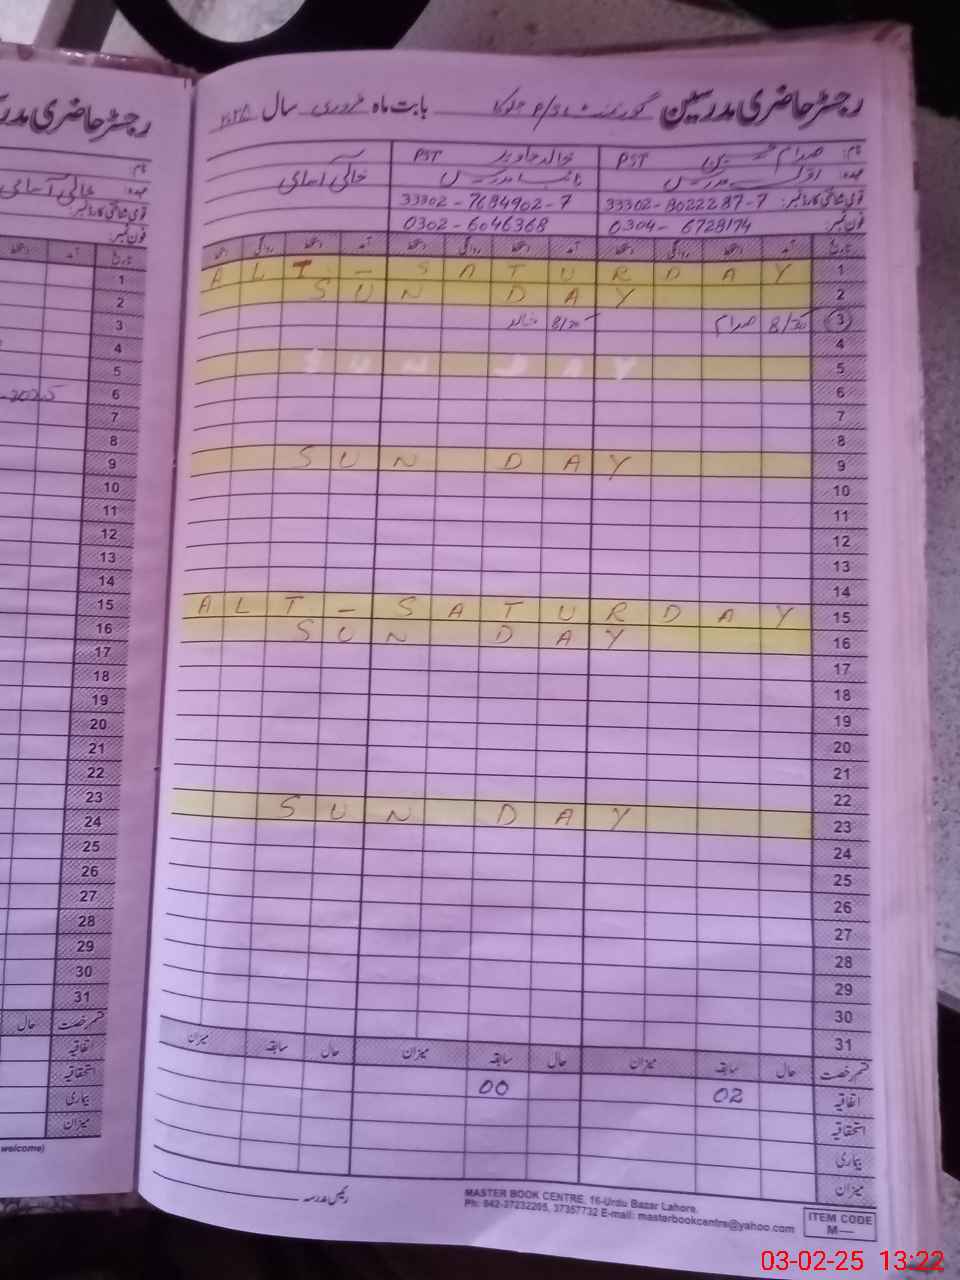 رجسٹر حاضری مدرسین گورنمنٹ بابت ماہ فروری سال ۲۰۲۵
نام: صدام PST خالد جاوید PST
عہدہ: اول مدرس نائب مدرس خالی آسامی
قومی شناختی کارڈ نمبر: 33302-8022287-7 33302-7684902-7
فون نمبر: 0304-6728174 0302-6046368
تاریخ آمد دستخط روانگی دستخط آمد دستخط روانگی دستخط آمد دستخط روانگی دستخط
1 ALT-SATURDAY
2 SUN DAY
3 8/30 صدام 8/30 خالد
4
5 SUN DAY
6
7
8
9 SUN DAY
10
11
12
13
14
15 ALT-SATURDAY
16 SUN DAY
17
18
19
20
21
22
23 SUN DAY
24
25
26
27
28
29
30
31
قسم رخصت حال سابقہ میزان حال سابقہ میزان حال سابقہ میزان
اتفاقیہ 02 00
استحقاقیہ
بیماری
میزان
رئیس مدرسہ
MASTER BOOK CENTRE, 16-Urdu Bazar Lahore.
Ph: 042-37232205, 37357732 E-mail: masterbookcentre@yahoo.com
ITEM CODE
M—
رجسٹر حاضری
نام:
عہدہ: خالی آسامی
قومی شناختی کارڈ نمبر:
فون نمبر:
تاریخ آمد دستخط
1
2
3
4
5
6 2025
7
8
9
10
11
12
13
14
15
16
17
18
19
20
21
22
23
24
25
26
27
28
29
30
31
قسم رخصت حال
اتفاقیہ
استحقاقیہ
بیماری
میزان
welcome)
03-02-25 13:22